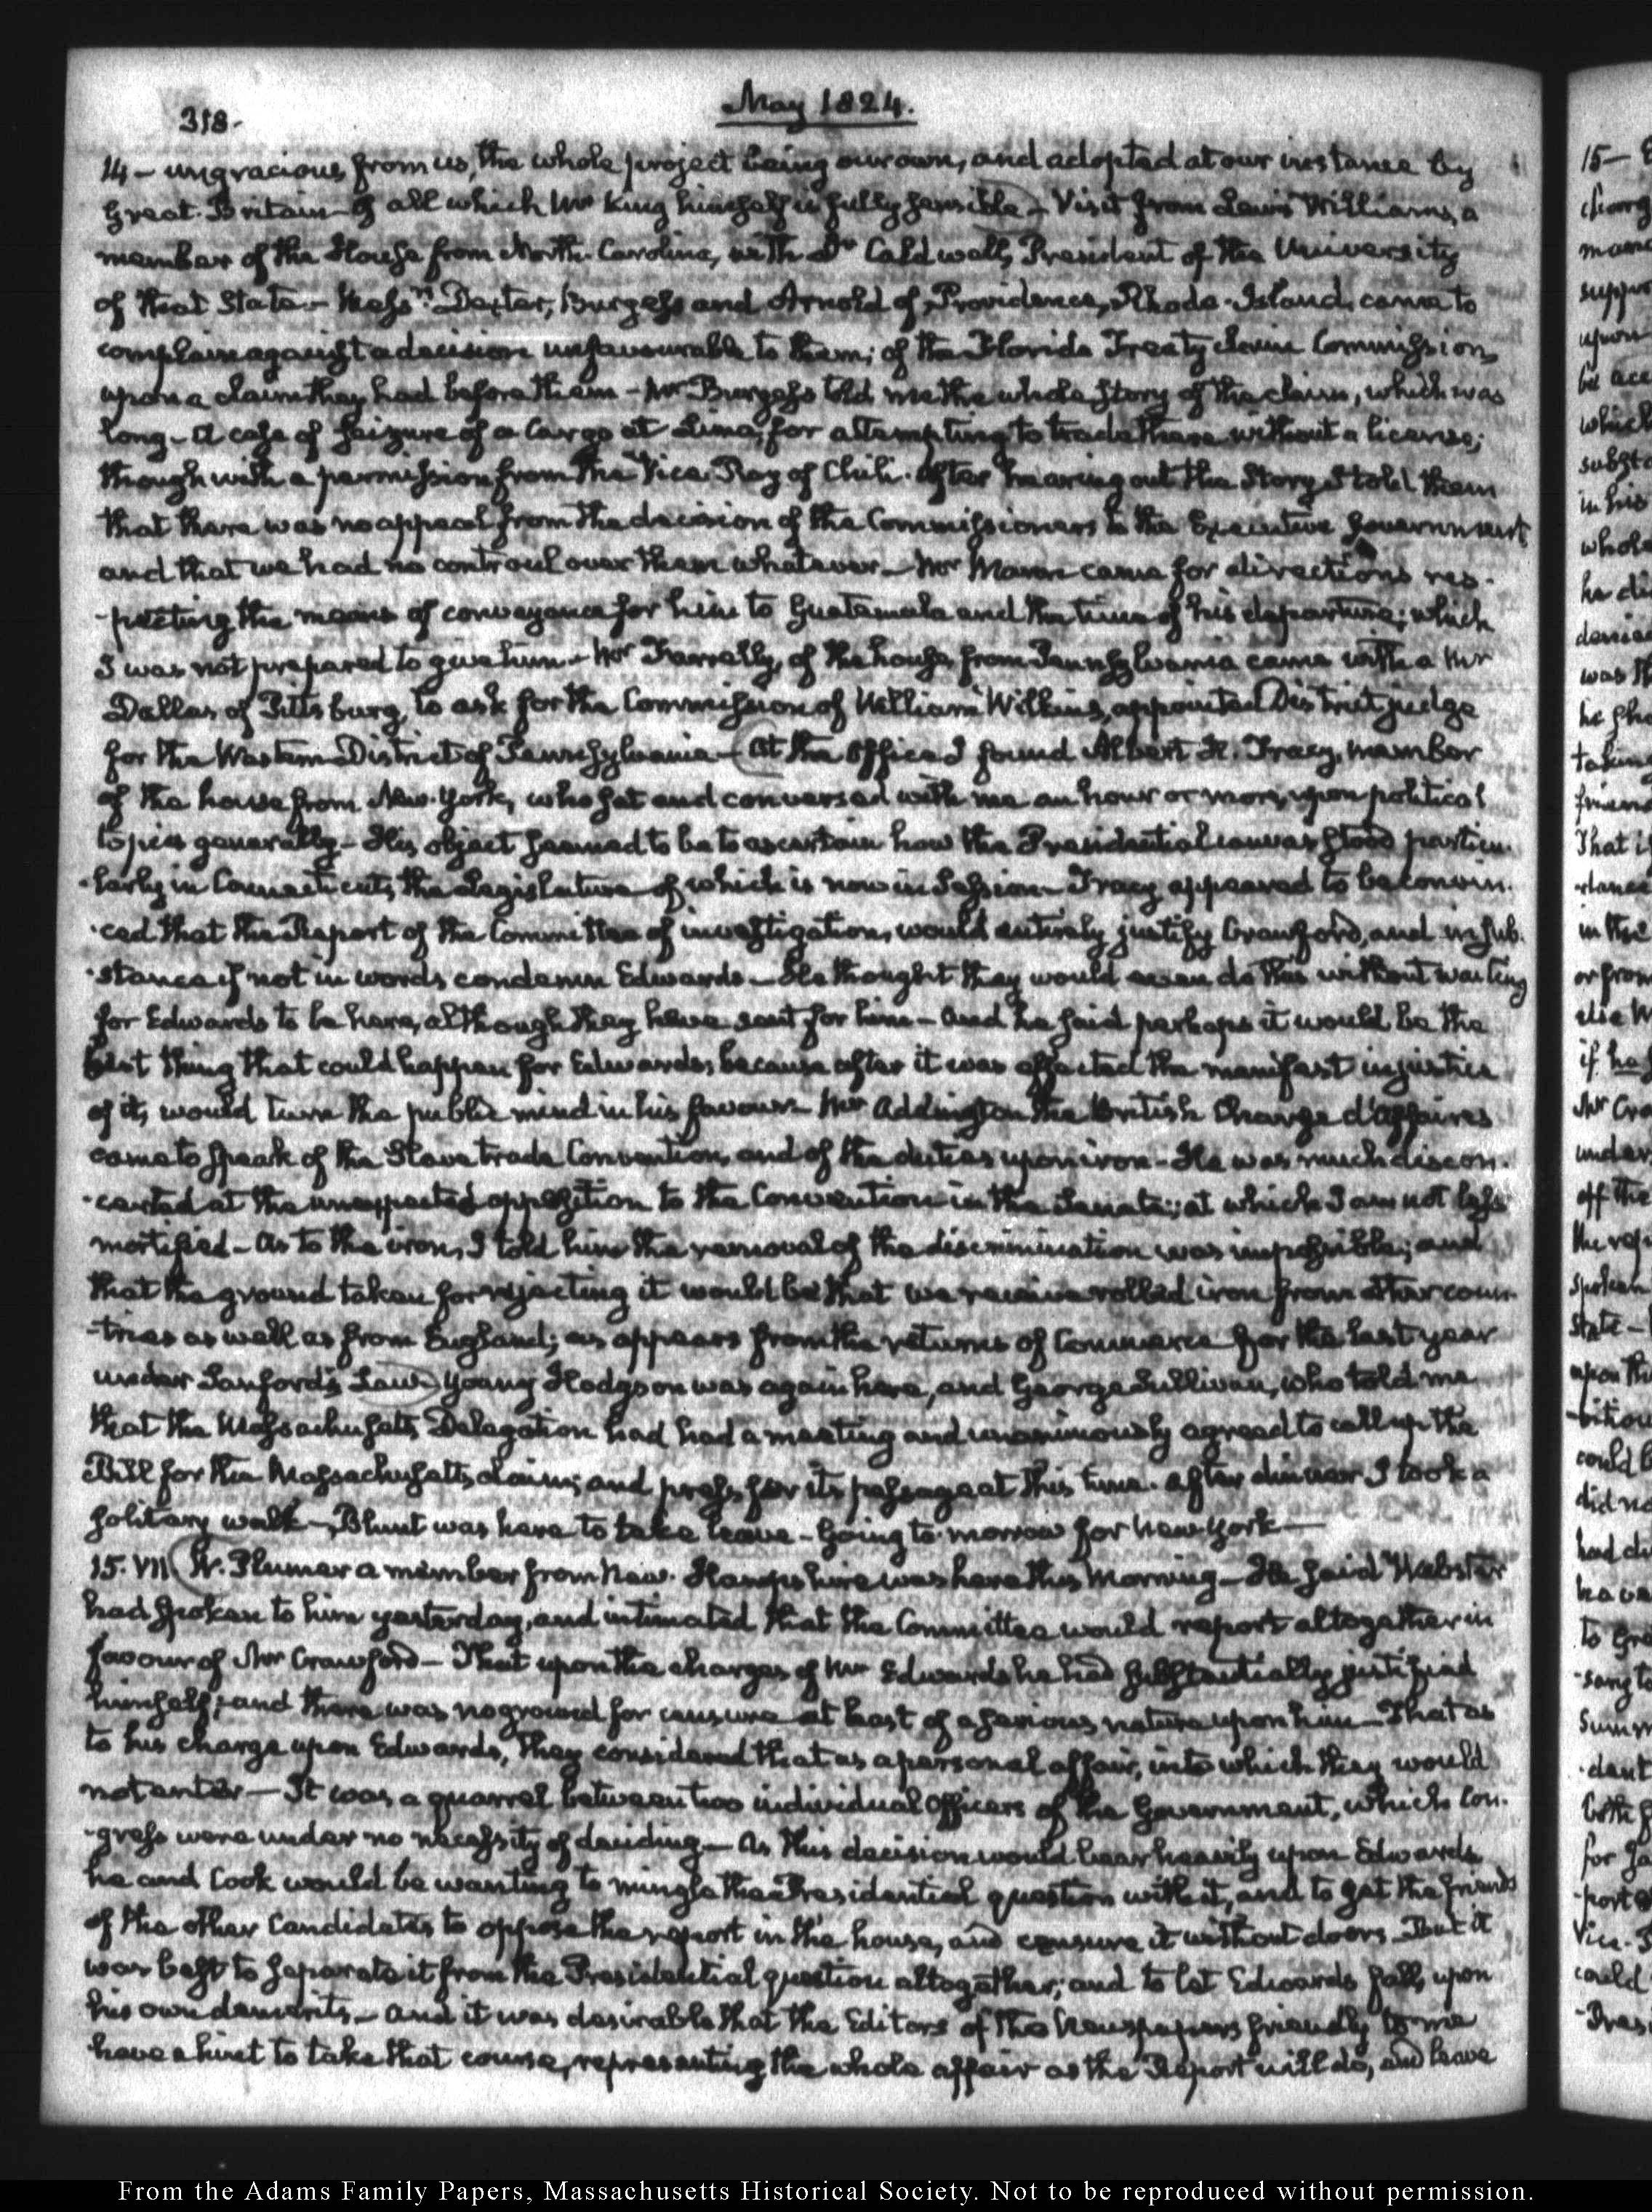 318-
May 1824.
14 - ungracious from us, the whole project being our own, and adopted at our instance by
Great-Britain - of all which Mr King himself is fully sensible - Visit from Lewis Williams, a
member of the House from North-Carolina, with Dr Caldwell, President of the University
of that State - Messrs Dexter, Burgess and Arnold of Providence, Rhode-Island, came to
complain against a decision unfavourable to them, of the Florida Treaty claim Commission,
upon a claim they had before them - Mr Burgess told me the whole story of the claim, which was
long - A case of seizure of a Cargo at Lima, for attempting to trade there without a license;
though with a permission from the Vice-Roy of Chili. After hearing out the Story I told them
that there was no appeal from the decision of the Commissioners to the Executive Government
and that we had no controul over them whatever - Mr Mann came for directions res-
-pecting the means of conveyance for him to Guatemala and the time of his departure; which
I was not prepared to give him - Mr Farrelly, of the house from Pennsylvania came with a Mr
Dallas of Pittsburg, to ask for the Commission of William Wilkins, appointed District judge
for the Western District of Pennsylvania - At the Office I found Albert H. Tracy, member
of the house from New-York, who sat and conversed with me an hour or more, upon political
topics generally - His object seemed to be to ascertain how the Presidential canvas stood particu-
-larly in Connecticut, the Legislature of which is now in Session - Tracy appeared to be convin-
-ced that the Report of the Committee of investigation, would entirely justify Crawford, and in sub-
-stance if not in words condemn Edwards - He thought they would even do this without waiting
for Edwards to be here, although they have sent for him - And he said perhaps it would be the
best thing that could happen for Edwards; because after it was effected the manifest injustice
of it, would turn the public mind in his favour - Mr Addington the British Chargé d'affaires
came to speak of the Slave trade Convention, and of the duties upon iron - He was much discon-
-certed at the unexpected opposition to the Convention in the Senate; at which I am not less
mortified - As to the iron, I told him the removal of the discrimination was impossible; and
that the ground taken for rejecting it would be that we receive rolled iron from other coun-
-tries as well as from England; as appears from the returns of Commerce for the last year
under Sanford's Law - Young Hodgson was again here, and George Sullivan, who told me
that the Massachusetts Delegation had had a meeting and unanimously agreed to call up the
Bill for the Massachusetts claim; and press for its passage at this time. After dinner I took a
solitary walk - Blunt was here to take leave - Going to-morrow for New-York -
15. VII W. Plumer a member from New-Hampshire was here this Morning - He said Webster
had spoken to him yesterday, and intimated that the Committee would report altogether in
favour of Mr Crawford - That upon the charges of Mr Edwards he had substantially justified
himself; and there was no ground for censure at least of a serious nature upon him - That as
to his charge upon Edwards, they considered that as a personal affair, into which they would
not enter - It was a quarrel between two individual Officers of the Government, which Con-
-gress were under no necessity of deciding - As this decision would bear heavily upon Edwards
he and Cook would be wanting to mingle the Presidential question with it, and to get the friends
of the other Candidates to oppose the report in the house, and censure it without doors - But it
was best to separate it from the Presidential question altogether; and to let Edwards fall, upon
his own demerits - And it was desirable that the Editors of the Newspapers friendly to me
have a hint to take that course, representing the whole affair as the Report will do, and leave
From the Adams Family Papers, Massachusetts Historical Society. Not to be reproduced without permission.